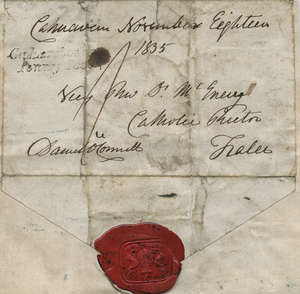 Cahirciveen November Eighteen
1835
Penny Post
Very Revd Dr McEnery
Catholic Rector
Daniel O'Connell Tralee